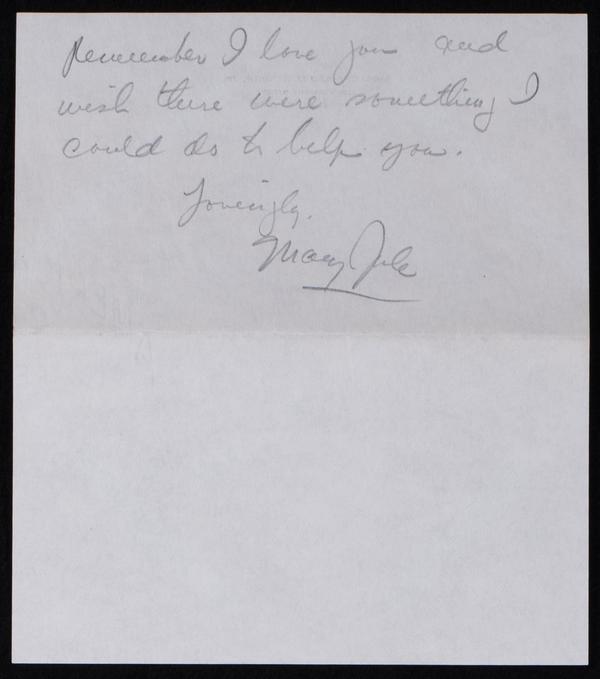 Remember I love you and
wish there were something I
could do to help you.
Lovingly,
Mary